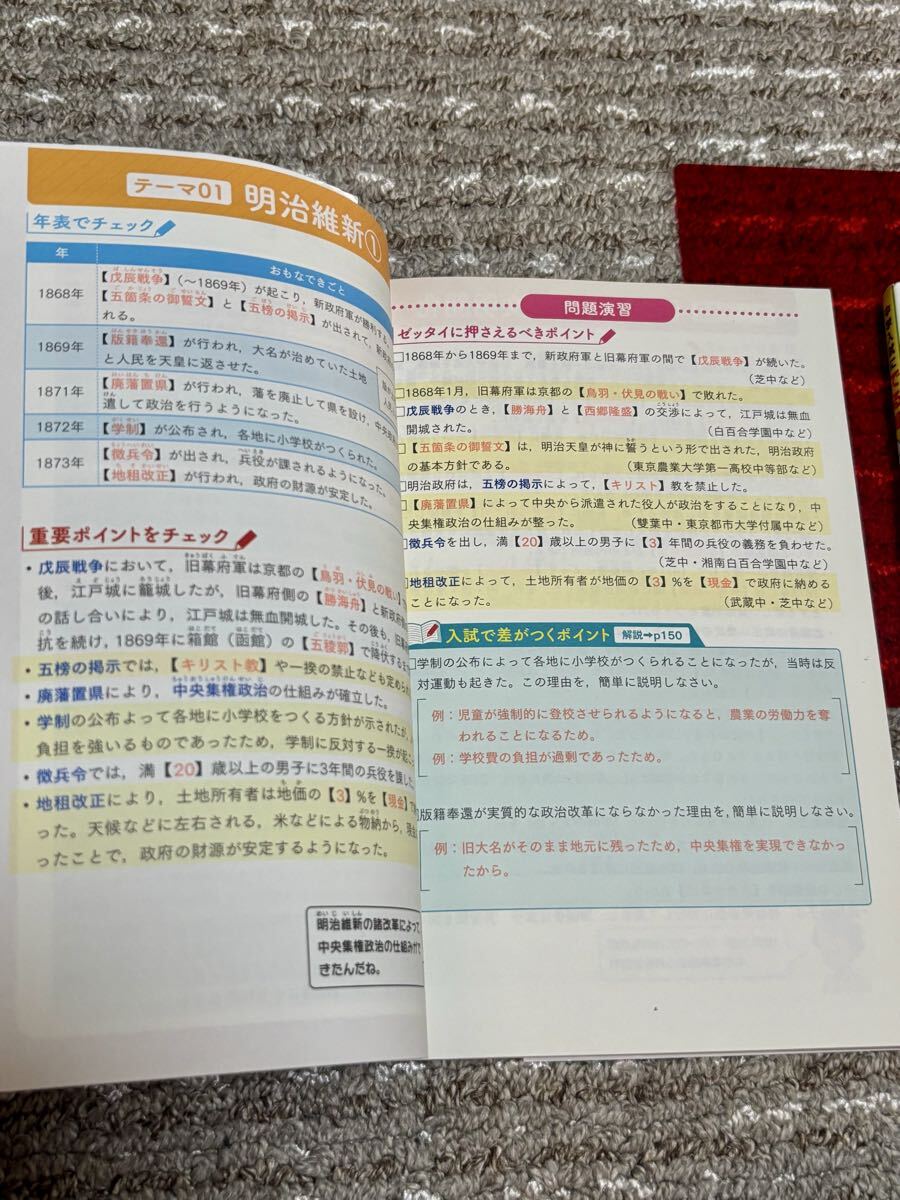 テーマ01 明治維新①
年表でチェック
年 おもなできごと
1868年 【戊辰戦争】(〜1869年)が起こり,新政府軍が勝利する。
【五箇条の御誓文】と【五榜の掲示】が出されて,新政
れる。
1869年 【版籍奉還】が行われ,大名が治めていた土地
と人民を天皇に返させた。
1871年 【廃藩置県】が行われ,藩を廃止して県を設け,中央
遣して政治を行うようになった。
1872年 【学制】が公布され,各地に小学校がつくられた。
1873年 【徴兵令】が出され,兵役が課されるようになった。
【地租改正】が行われ,政府の財源が安定した。
重要ポイントをチェック
・戊辰戦争において,旧幕府軍は京都の【鳥羽・伏見の戦い】
後,江戸城に籠城したが,旧幕府側の【勝海舟】と新政府
の話し合いにより,江戸城は無血開城した。その後も,旧幕
抗を続け,1869年に箱館(函館)の【五稜郭】で降伏する
・五榜の掲示では,【キリスト教】や一揆の禁止なども定め
・廃藩置県により,中央集権政治の仕組みが確立した。
・学制の公布よって各地に小学校をつくる方針が示されたが,
負担を強いるものであったため,学制に反対する一揆が起こ
・徴兵令では,満【20】歳以上の男子に3年間の兵役を課した
・地租改正により,土地所有者は地価の【3】%を【現金】で
った。天候などに左右される,米などによる物納から,現
ったことで,政府の財源が安定するようになった。
明治維新の諸改革によって,
中央集権政治の仕組みがで
きたんだね。
問題演習
ゼッタイに押さえるべきポイント
□1868年から1869年まで,新政府軍と旧幕府軍の間で【戊辰戦争】が続いた。
(芝中など)
□1868年1月,旧幕府軍は京都の【鳥羽・伏見の戦い】で敗れた。
□戊辰戦争のとき,【勝海舟】と【西郷隆盛】の交渉によって,江戸城は無血
開城された。 (白百合学園中など)
□【五箇条の御誓文】は,明治天皇が神に誓うという形で出された,明治政府
の基本方針である。 (東京農業大学第一高校中等部など)
□明治政府は,五榜の掲示によって,【キリスト】教を禁止した。
□【廃藩置県】によって中央から派遣された役人が政治をすることになり,中
央集権政治の仕組みが整った。 (雙葉中・東京都市大学付属中など)
□徴兵令を出し,満【20】歳以上の男子に【3】年間の兵役の義務を負わせた。
(芝中・湘南白百合学園中など)
□地租改正によって,土地所有者が地価の【3】%を【現金】で政府に納める
ことになった。 (武蔵中・芝中など)
入試で差がつくポイント 解説→p150
□学制の公布によって各地に小学校がつくられることになったが,当時は反
対運動も起きた。この理由を,簡単に説明しなさい。
例:児童が強制的に登校させられるようになると,農業の労働力を奪
われることになるため。
例:学校費の負担が過剰であったため。
版籍奉還が実質的な政治改革にならなかった理由を,簡単に説明しなさい。
例:旧大名がそのまま地元に残ったため,中央集権を実現できなかっ
たから。